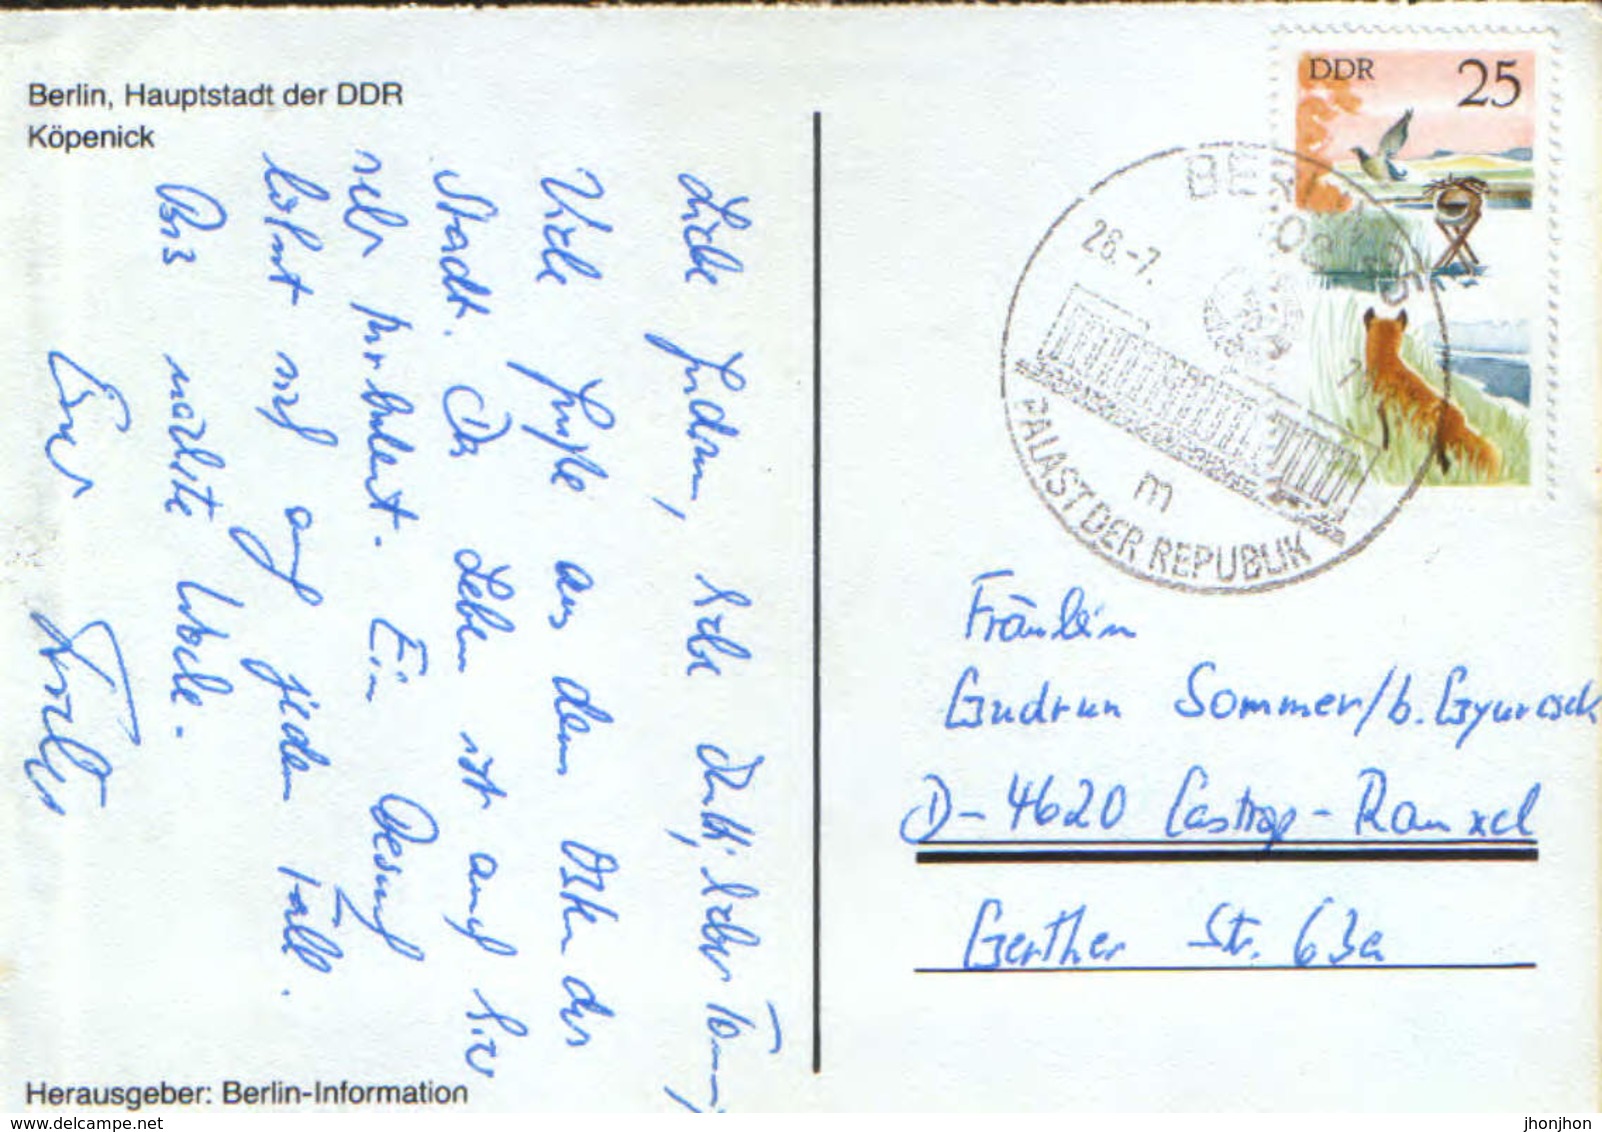 Berlin, Hauptstadt der DDR
Köpenick
Liebe Gudrun, liebe Dutti, lieber Tommy
Viele Grüße aus dem Osten der
Stadt. Das Leben ist auch hier
sehr turbulent. Ein Besuch
lohnt sich auf jeden Fall.
Bis nächste Woche.
Euer
Herausgeber: Berlin-Information
DDR 25
BERLIN
26.-7.
m
PALAST DER REPUBLIK
Fräulein
Gudrun Sommer/b.
D-4620 Castrop-Rauxel
Gerther Str. 63a
www.delcampe.net
jhonjhon